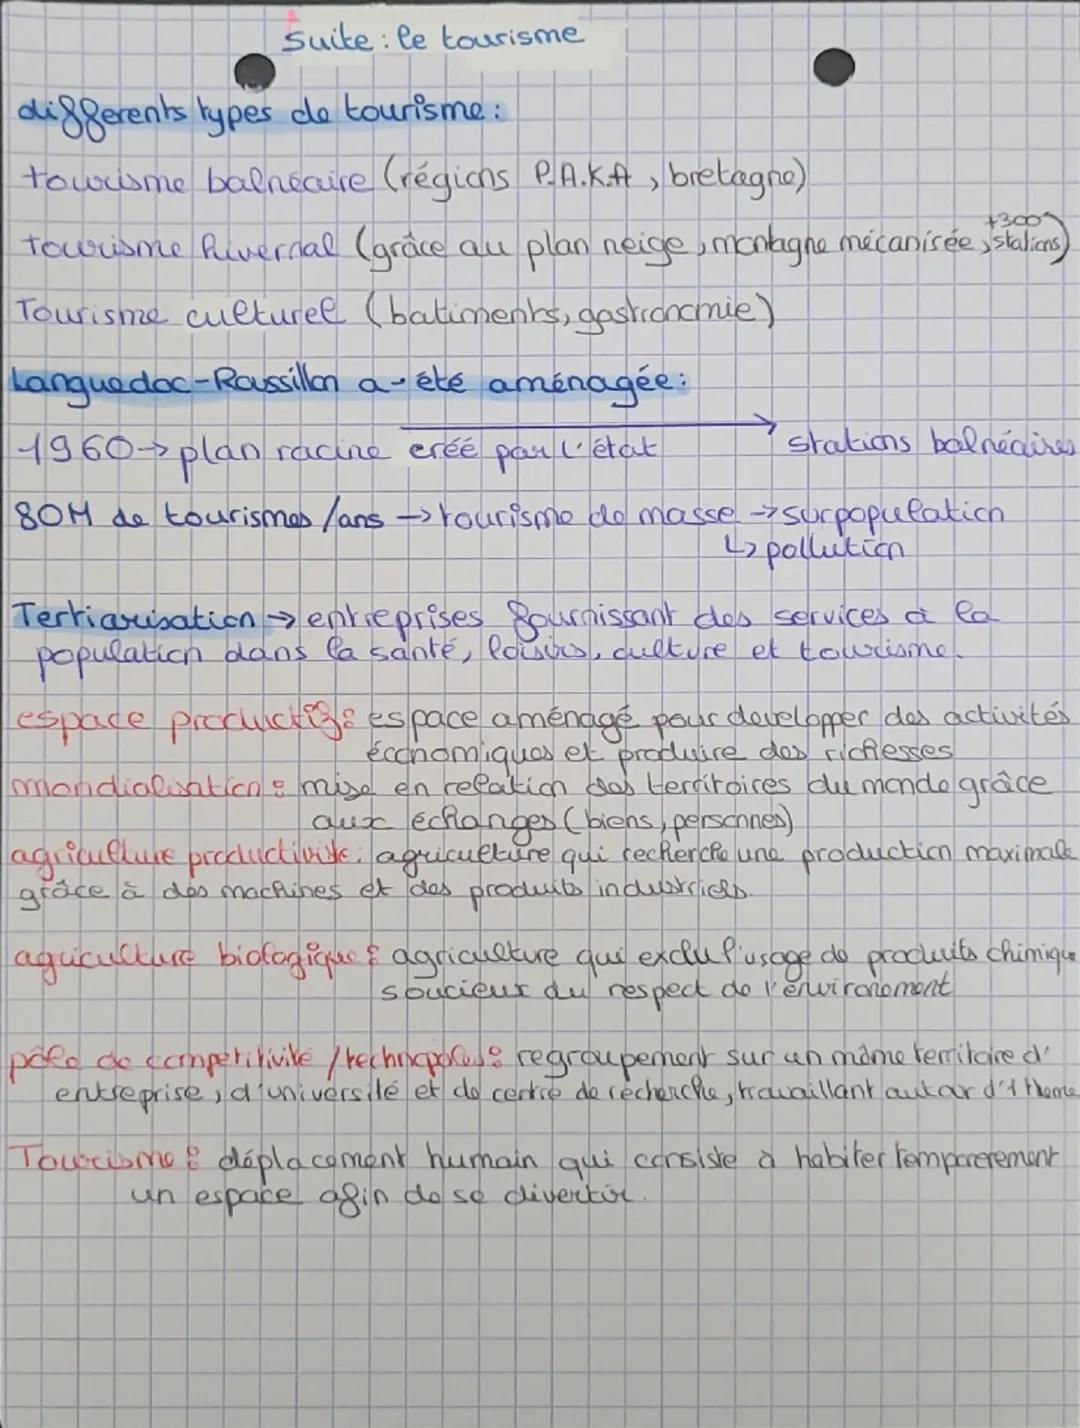 Suite : le tourisme
differents types de tourisme :
tourisme balnéaire (régions P.A.K.A, bretagne)
+300
tourisme hivernal (grâce au plan neige, montagne mécanisée, stations)
Tourisme culturel (batiments, gastronomie)
Languedoc-Roussillon a été aménagée :
1960 → plan racine créé par l'état → stations balnéaires
80M de tourismes /ans → tourisme de masse → surpopulation
↳ pollution
Tertiarisation → entreprises fournissant des services à la
population dans la santé, loisirs, culture et tourisme.
espace productif : espace aménagé pour developper des activités
économiques et produire des richesses
mondialisation : mise en relation des territoires du monde grâce
aux échanges (biens, personnes)
agriculture productiviste : agriculture qui recherche une production maximale
grâce à des machines et des produits industriels.
agriculture biologique : agriculture qui exclu l'usage de produits chimique
soucieux du respect de l'environement
pôle de competitivité / technopoles : regroupement sur un même territoire d'
entreprise, d'université et de centre de recherche, travaillant autour d'1 theme
Tourisme : déplacement humain qui consiste à habiter temporerement
un espace afin de se divertir.